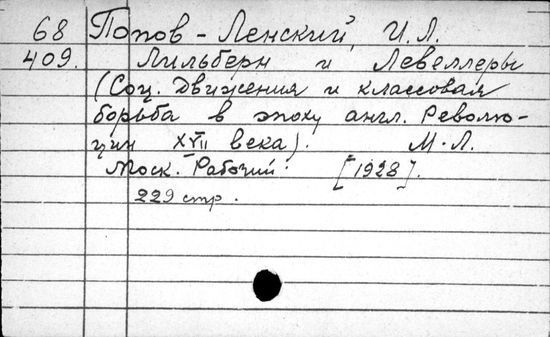 68 Попов-Ленский, И.Л.
409. Лильберн и Левеллеры
(Соц. движения и классовая
борьба в эпоху англ. Револю-
ции XVII века). М.-Л.
Моск. Рабочий. [1928].
229 стр.